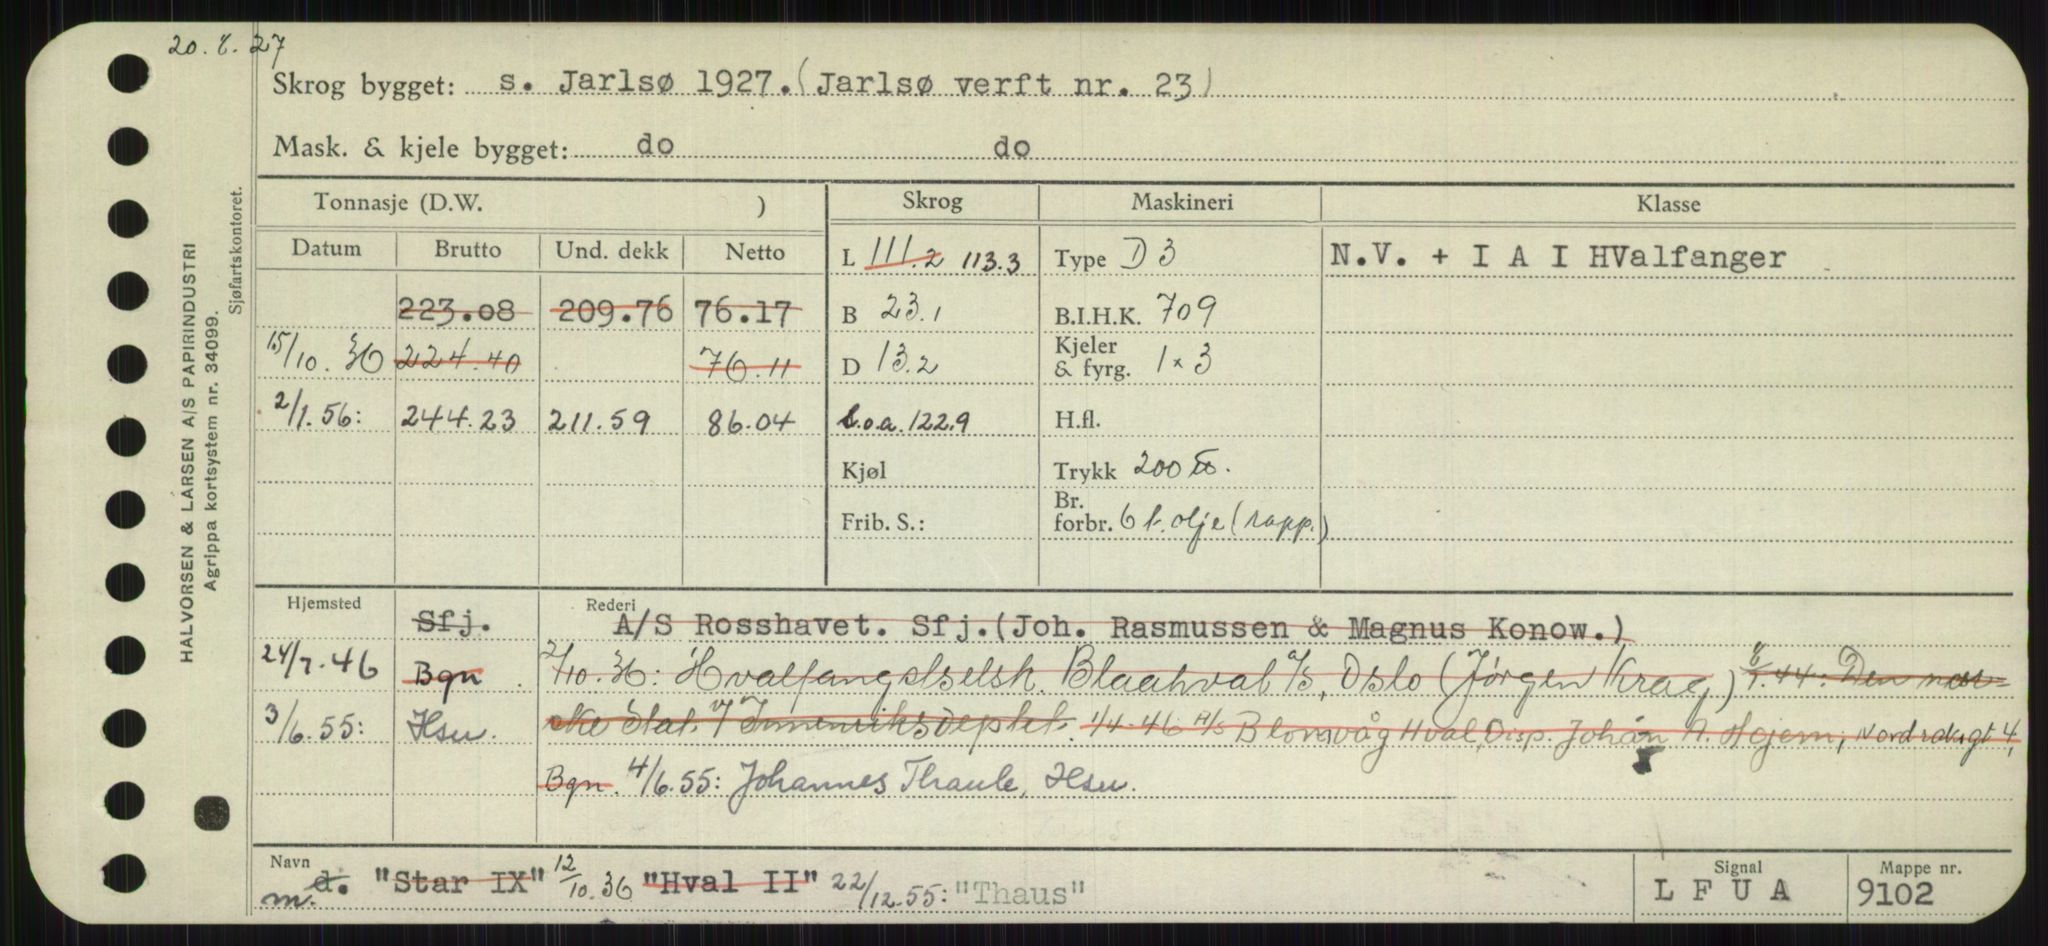 20.8.27
Skrog bygget: s. Jarlsø 1927. (Jarlsø verft nr. 23)
Mask. & kjele bygget: do do
Tonnasje (D.W. ) Skrog Maskineri Klasse
Datum Brutto Und. dekk Netto L 111.2 113.3 Type D 3 N.V. + I A I HValfanger
223.08 209.76 76.17 B 23.1 B.I.H.K. 709
15/10.36 224.40 76.11 D 13.2 Kjeler & fyrg. 1 x 3
2/1.56: 244.23 211.59 86.04 L.o.a. 122.9 H.fl.
Kjøl Trykk 200
Frib. S.: Br. forbr. 6 t. olje (rapp.)
Hjemsted Rederi
Sfj. A/S Rosshavet. Sfj.(Joh. Rasmussen & Magnus Konow.)
24/7.46 Bgn 2/10.36: Hvalfangstselsk. Blaahval A/S, Oslo (Jørgen Krag) 44: Den nor-
3/6.55: Hsu. ske Stat v/ Innenriksdeptet. 1/4-46 A/S Blomvåg Hval, Disp. Johan A. Hojem, 4,
Bgn. 4/6.55: Johannes Thaule, Hsu.
Navn Signal Mappe nr.
m. d. "Star IX" 12/10.36 "Hval II" 22/12.55: "Thaus" L F U A 9102
HALVORSEN & LARSEN A/S PAPIRINDUSTRI
Agrippa kortsystem nr. 34099.
Sjøfartskontoret.